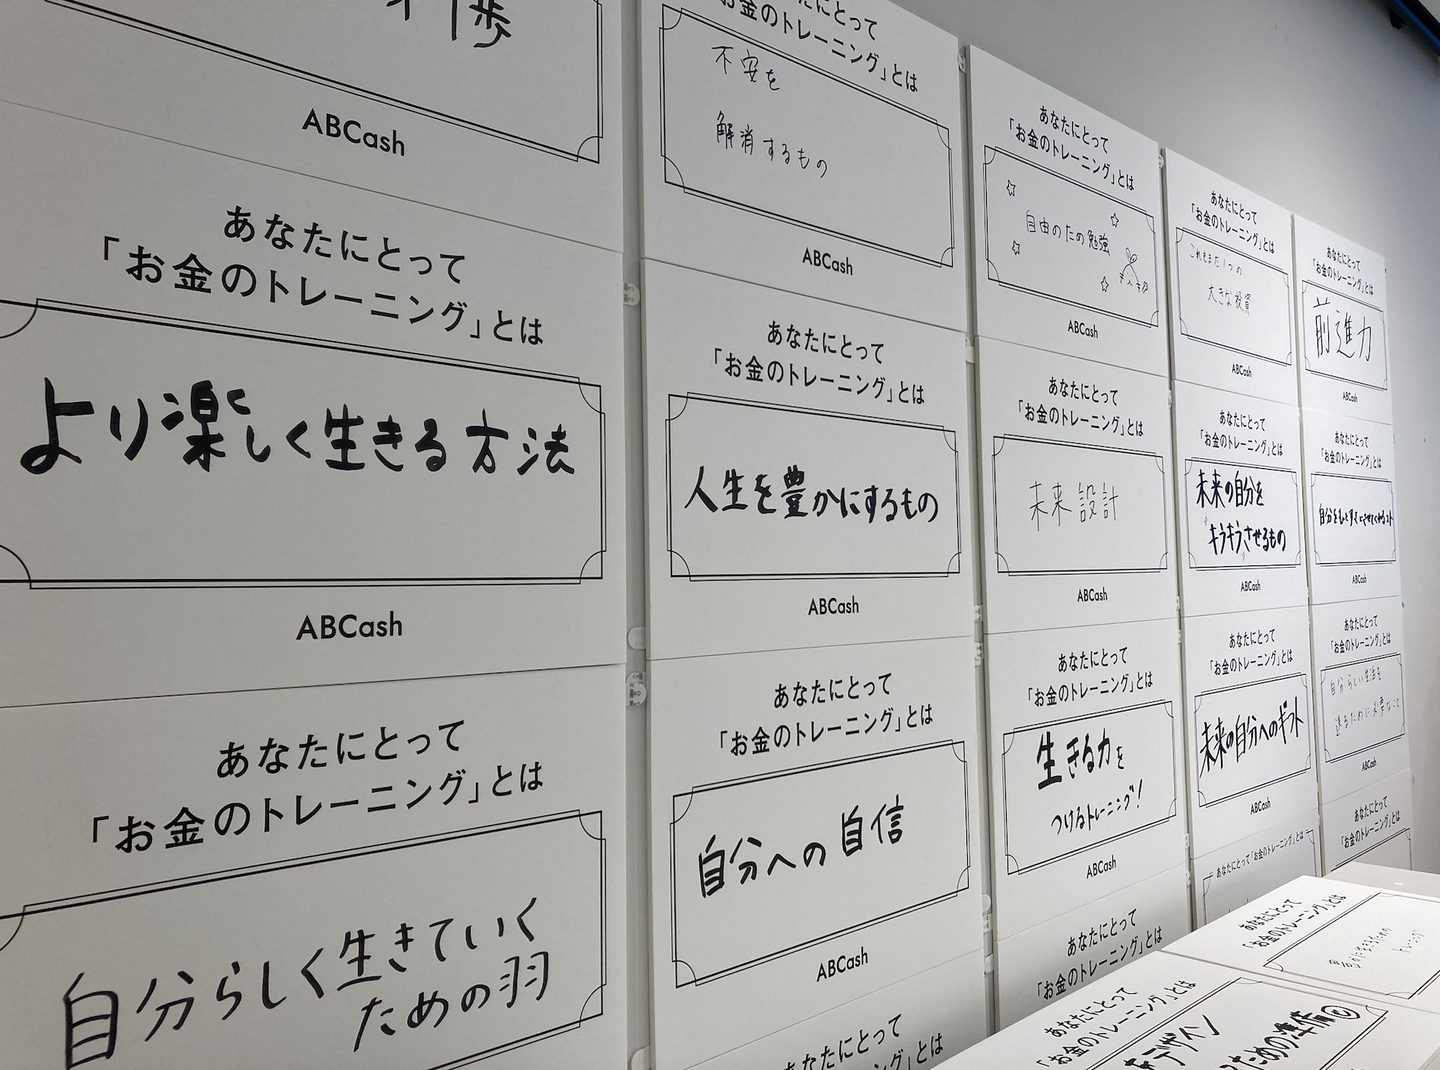 ABCash
あなたにとって
「お金のトレーニング」とは
より楽しく生きる方法
ABCash
あなたにとって
「お金のトレーニング」とは
自分らしく生きていく
ための羽
あなたにとって
「お金のトレーニング」とは
不安を
解消するもの
ABCash
あなたにとって
「お金のトレーニング」とは
人生を豊かにするもの
ABCash
あなたにとって
「お金のトレーニング」とは
自分への自信
ABCash
あなたにとって
「お金のトレーニング」とは
あなたにとって
「お金のトレーニング」とは
自由のための勉強
ABCash
あなたにとって
「お金のトレーニング」とは
未来設計
ABCash
あなたにとって
「お金のトレーニング」とは
生きる力を
つけるトレーニング!
ABCash
あなたにとって
「お金のトレーニング」とは
あなたにとって
「お金のトレーニング」とは
これもまた1つの
大きな投資
ABCash
あなたにとって
「お金のトレーニング」とは
未来の自分を
キラキラさせるもの
ABCash
あなたにとって
「お金のトレーニング」とは
未来の自分へのギフト
ABCash
あなたにとって「お金のトレーニング」とは
あなたにとって
「お金のトレーニング」とは
前進力
ABCash
あなたにとって
「お金のトレーニング」とは
ABCash
あなたにとって
「お金のトレーニング」とは
自分らしい生活を
送るために必要なこと
ABCash
あなたにとって
「お金のトレーニング」とは
あなたにとって
「お金のトレーニング」とは
トレーニング
あなたにとって
「お金のトレーニング」とは
デザイン
ための準備